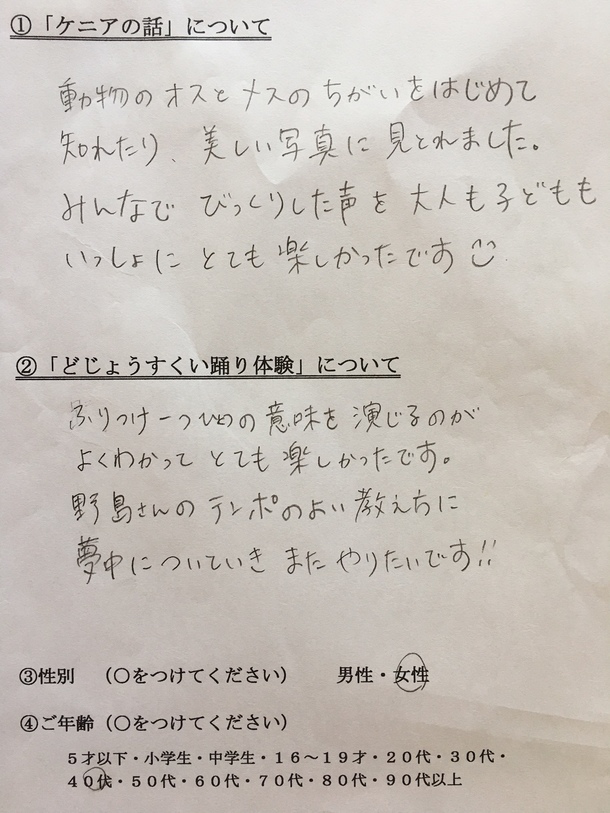 ①「ケニアの話」について
動物のオスとメスのちがいをはじめて
知れたり、美しい写真に見とれました。
みんなで びっくりした声を 大人も子どもも
いっしょに とても 楽しかったです
②「どじょうすくい踊り体験」について
ふりつけ一つひとつの意味を 演じるのが
よくわかって とても 楽しかったです。
野島さんの テンポのよい 教え方に
夢中に ついていき また やりたいです!!
③性別 （○をつけてください） 男性・女性
④ご年齢（○をつけてください）
５才以下・小学生・中学生・１６～１９才・２０代・３０代・
４０代・５０代・６０代・７０代・８０代・９０代以上